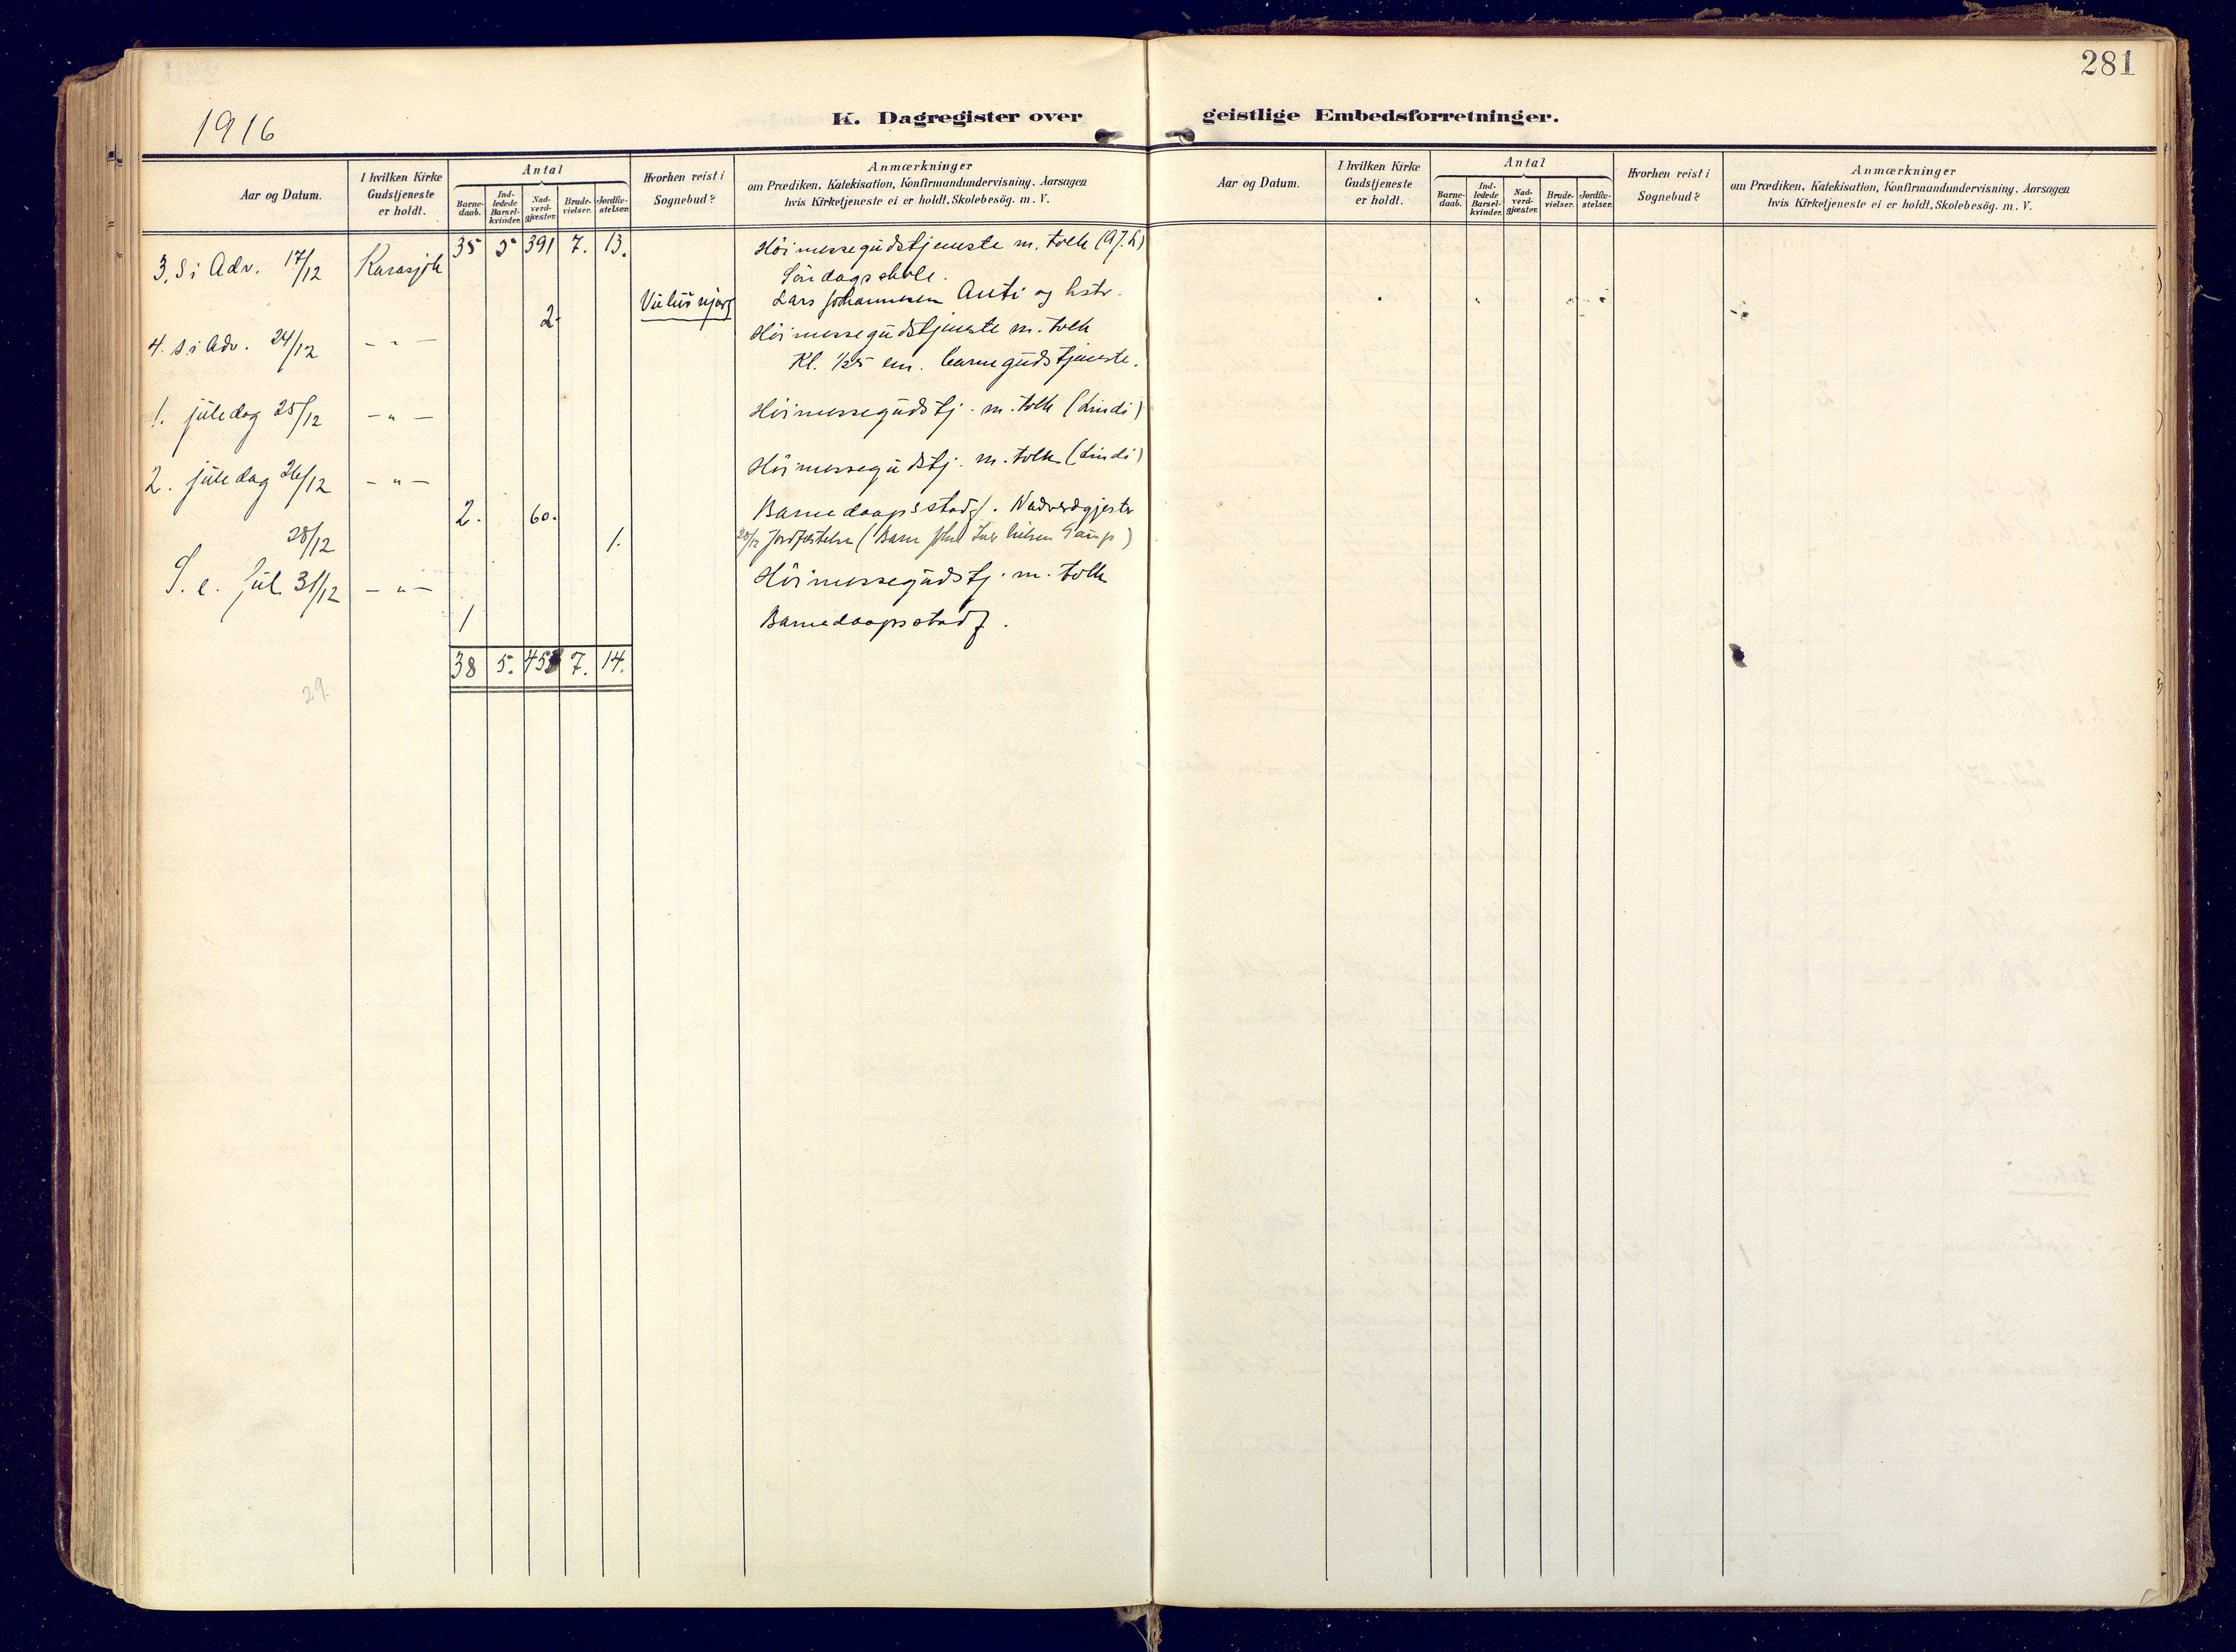 281
1916
K. Dagregister over geistlige Embedsforretninger.
Aar og Datum.
I hvilken Kirke Gudstjeneste er holdt.
Antal
Barnedaab.
Indledede Barselkvinder.
Nadverdgjæster.
Brudevielser.
Jordfæstelser.
Hvorhen reist i Sognebud?
Anmærkninger
om Prædiken, Katekisation, Konfirmandundervisning, Aarsagen
hvis Kirketjeneste ei er holdt, Skolebesög. m. V.
Aar og Datum.
I hvilken Kirke Gudstjeneste er holdt.
Antal
Barnedaab.
Indledede Barselkvinder.
Nadverdgjæster.
Brudevielser.
Jordfæstelser.
Hvorhen reist i Sognebud?
Anmærkninger
om Prædiken, Katekisation, Konfirmandundervisning, Aarsagen
hvis Kirketjeneste ei er holdt, Skolebesög. m. V.
3. S i Adv. 17/12 Karasjok 35 5 391 7. 13. Höimessegudstjeneste m. tolk
Söndagsskole.
2. Lars Johannesen Auti og hstr.
4. S. i Adv. 24/12 - " - Höimessegudstjeneste m. tolk
Kl. 1/2 5 em. barnegudstjeneste.
1. juledag 25/12 - " - Höimessegudstj. m. tolk (Lindi)
2. juledag 26/12 - " - Höimessegudstj. m. tolk (Lindi)
2. 60. Barnedaap stadf. Nadverdgjester
28/12 1. 28/12 Jordfæstelse (Barn
S. e. Jul. 31/12 - " - Höimessegudstj. m. tolk
1 Barnedaaps stadf.
38 5. 453 7. 14.
29.